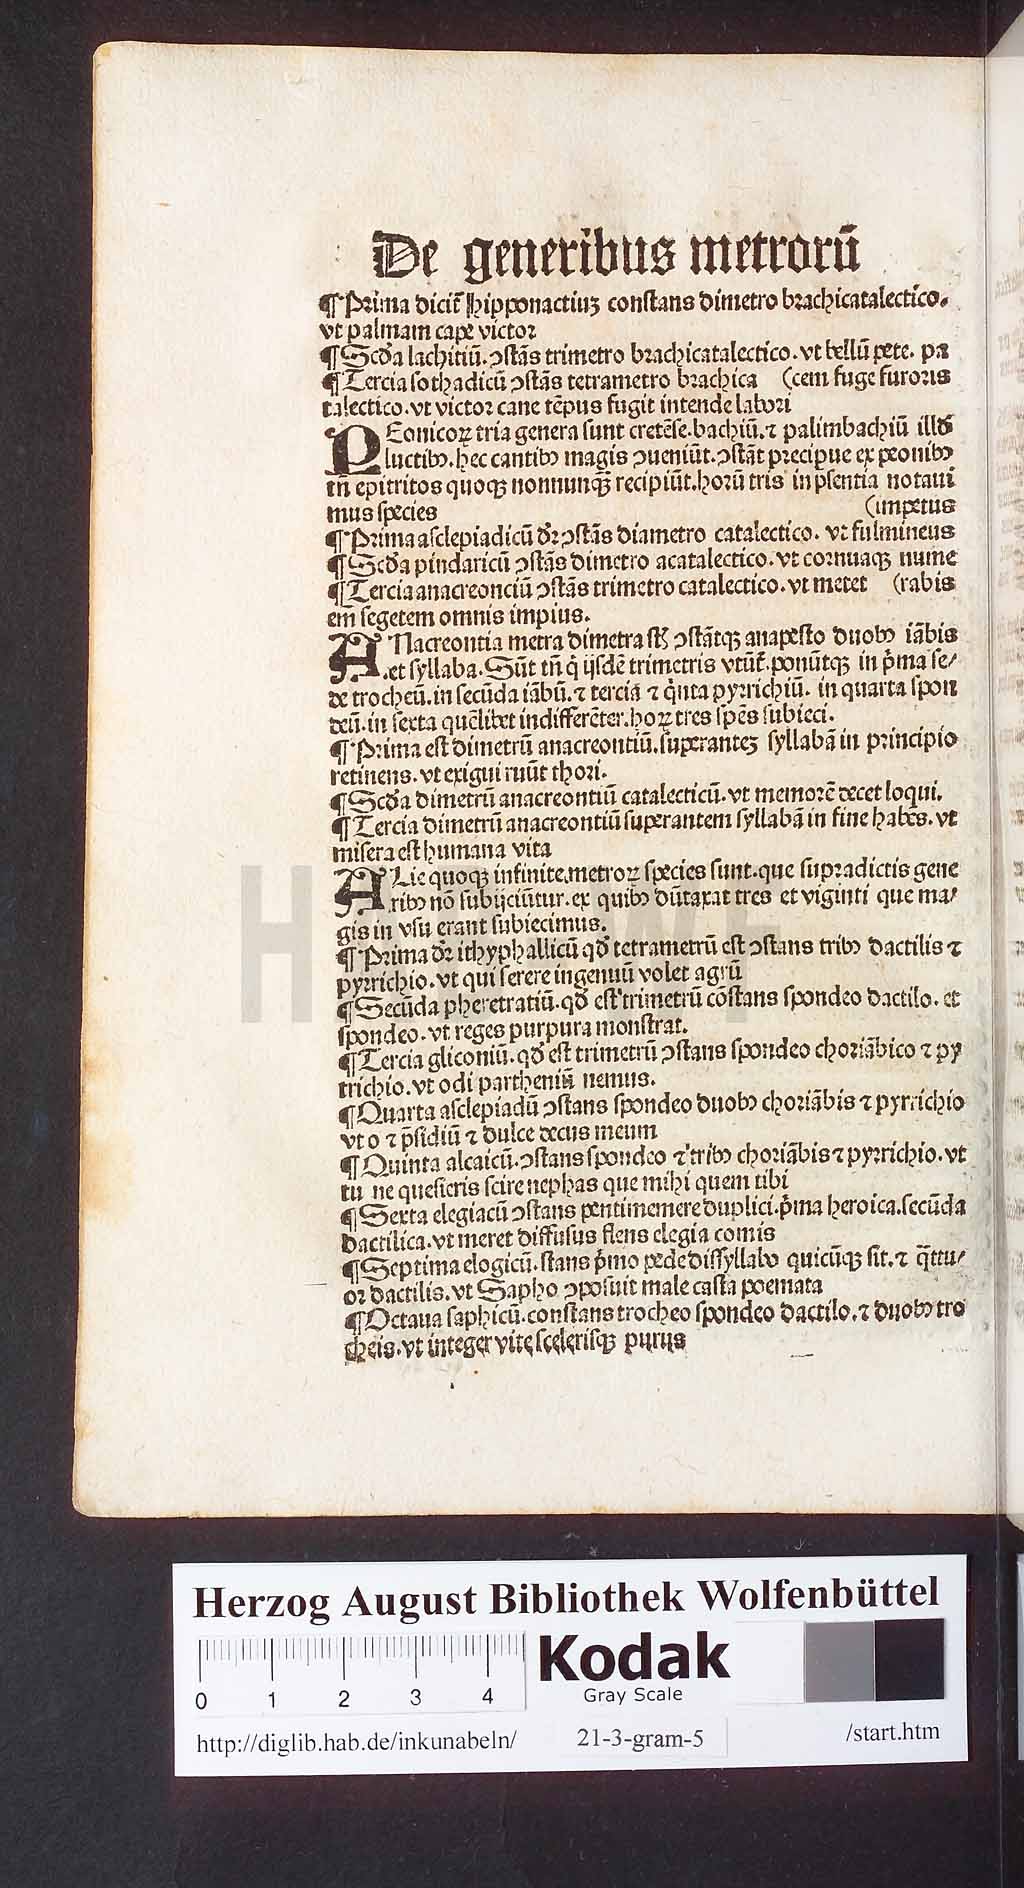 De generibus metrorū
¶ Prima dicit̄ hipponactiuꝫ constans dimetro brachicatalectico.
vt palmam cape victor
¶ Scd̄a lachitiū. ꝯstās trimetro brachicatalectico. vt bellū pete. pa
¶ Tercia sothadicū ꝯstās tetrametro brachica (cem fuge furoris
talectico. vt victor cane tēpus fugit intende labori
PEonicoꝝ tria genera sunt cretēse. bachiū. ⁊ palimbachiū illd̄
luctibꝰ. hec cantibꝰ magis ꝯueniūt. ꝯstāt precipue ex peonibꝰ
tn̄ epitritos quoqꝫ nonnunqꝫ recipiūt. horū tris in p̄sentia notaui
mus species (impetus
¶ Prima asclepiadicū dr̄ ꝯstās diametro catalectico. vt fulmineus
¶ Scd̄a pindaricū ꝯstās dimetro acatalectico. vt cornuaqꝫ nume
¶ Tercia anacreonciū ꝯstās trimetro catalectico. vt metet (rabis
em segetem omnis impius.
ANacreontia metra dimetra st̄ ꝯstātqꝫ anapesto duobꝰ iābis
.et syllaba. Sūt tn̄ q̇ ijsdē trimetris vtūt̄. ponūtqꝫ in p̄ma se/
de trocheū. in secūda iābū. ⁊ tercia ⁊ q̇nta pyrrichiū. in quarta spon
deū. in sexta quēlibet indifferēter. hoꝝ tres spēs subieci.
¶ Prima est dimetrū anacreontiū. superanteꝫ syllabā in principio
retinens. vt exigui ruūt thori.
¶ Scd̄a dimetrū anacreontiū catalecticū. vt memorē decet loqui.
¶ Tercia dimetrū anacreontiū superantem syllabā in fine habēs. vt
misera est humana vita
ALie quoqꝫ infinite. metroꝝ species sunt. que supradictis gene
.ribꝰ nō subijciūtur. ex quibꝰ dūtaxat tres et viginti que ma/
gis in vsu erant subiecimus.
¶ Prima dr̄ ithyphallicū qd̄ tetrametrū est ꝯstans tribꝰ dactilis ⁊
pyrrichio. vt qui serere ingenuū volet agrū
¶ Secūda pheretratiū. qd̄ est trimetrū cōstans spondeo dactilo. et
spondeo. vt reges purpura monstrat.
¶ Tercia gliconiū. qd̄ est trimetrū ꝯstans spondeo choriābico ⁊ py
trichio. vt odi partheniū nemus.
¶ Quarta asclepiadū ꝯstans spondeo duobꝰ choriābis ⁊ pyrrichio
vt o ⁊ p̄sidiū ⁊ dulce decus meum
¶ Quinta alcaicū. ꝯstans spondeo ⁊ tribꝰ choriābis ⁊ pyrrichio. vt
tu ne quesieris scire nephas que mihi quem tibi
¶ Sexta elegiacū ꝯstans pentimemere duplici. p̄ma heroica. secūda
dactilica. vt meret diffusus flens elegia comis
¶ Septima elogicū. stans p̄mo pede dissyllabo quicūqꝫ sit. ⁊ q̄ttu/
or dactilis. vt Sapho ꝯposuit male casta poemata
¶ Octaua saphicū. constans trocheo spondeo dactilo. ⁊ duobꝰ tro
cheis. vt integer vite scelerisqꝫ purus
HAB WF
Herzog August Bibliothek Wolfenbüttel
0 1 2 3 4
Kodak
Gray Scale
http://diglib.hab.de/inkunabeln/ 21-3-gram-5 /start.htm